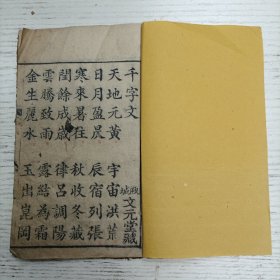 千字文 文元堂藏
天地元黃 宇宙洪荒
日月盈昃 辰宿列張
寒來暑往 秋收冬藏
閏餘成歲 律呂調陽
雲騰致雨 露結為霜
金生麗水 玉出崑岡